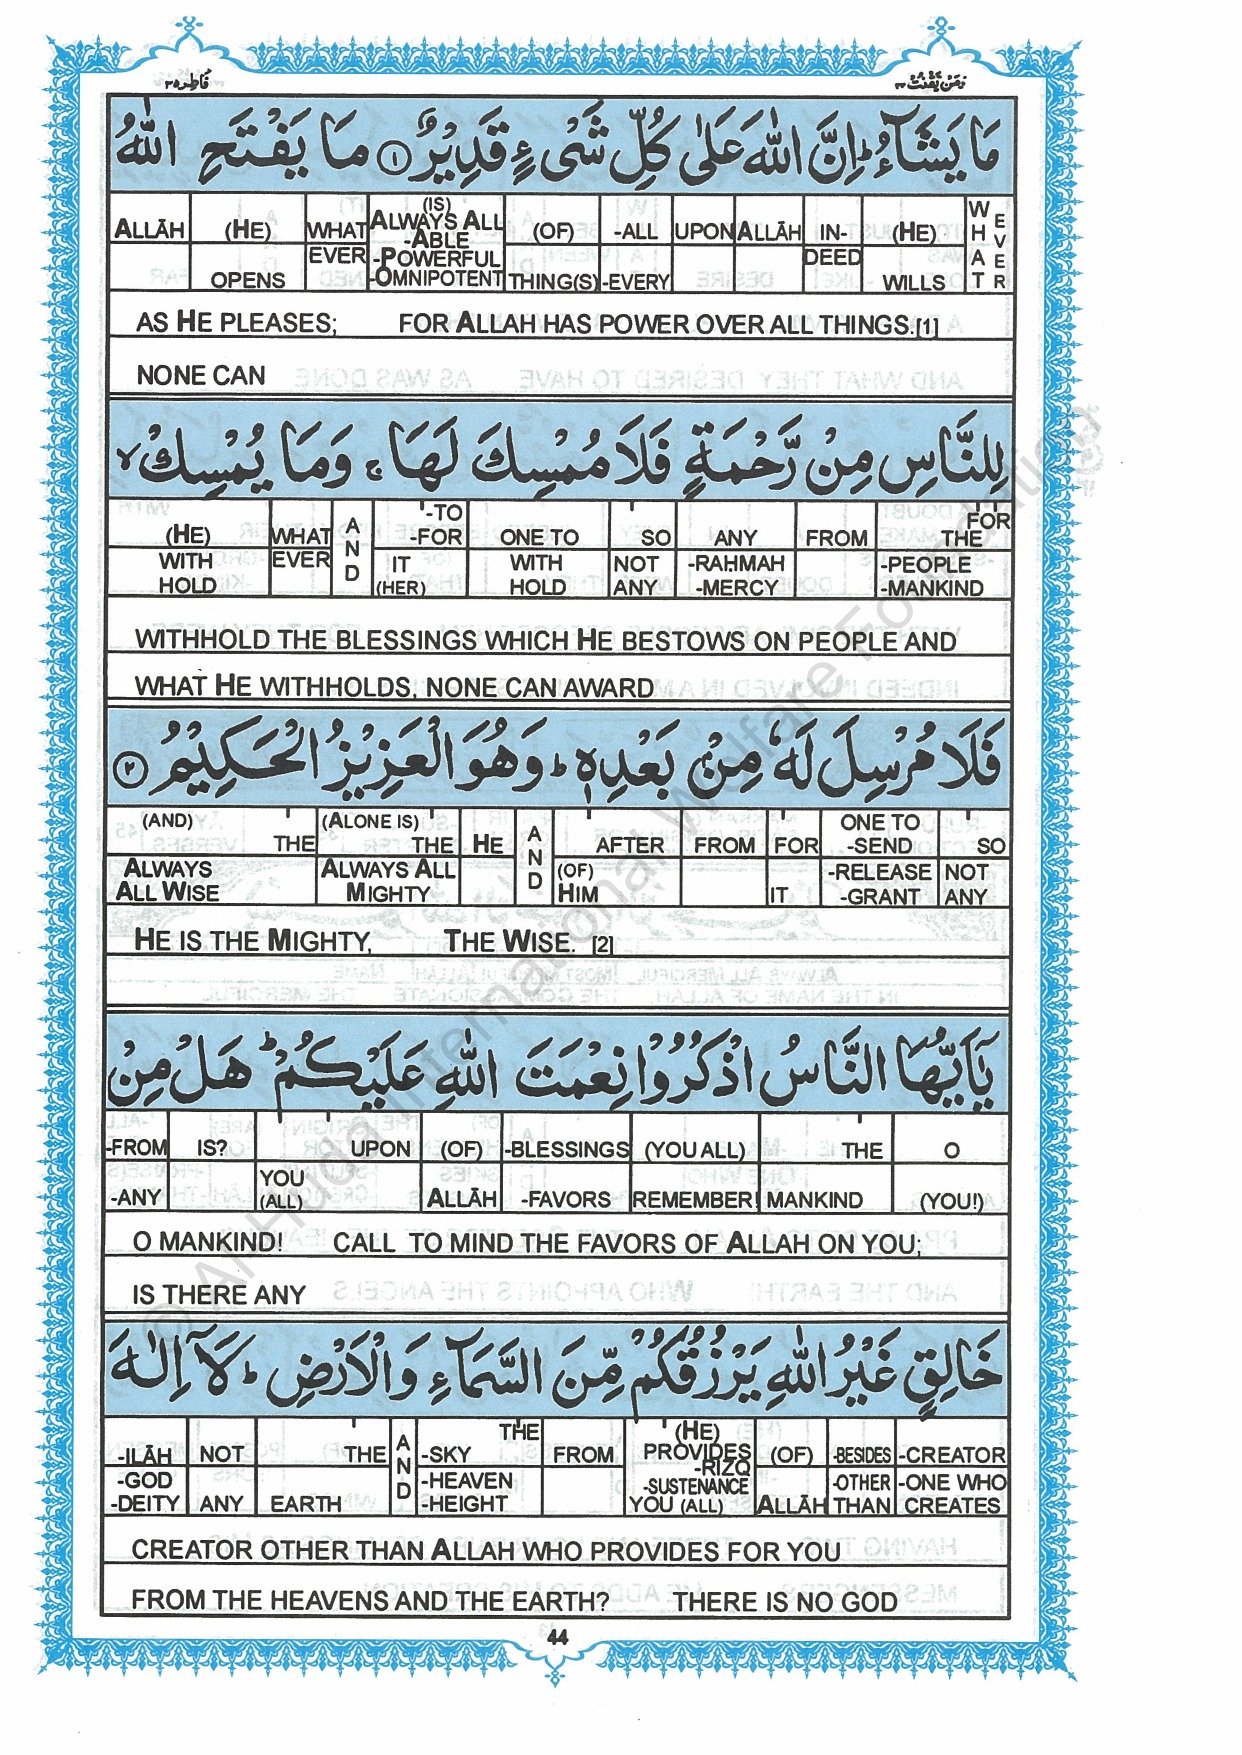 فاطر ٣٥ ومن يقنت ٢٢
مَا يَشَآءُ ؕ اِنَّ اللّٰهَ عَلٰى كُلِّ شَىْءٍ قَدِيْرٌ ۝١ مَا يَفْتَحِ اللّٰهُ
ALLĀH | (HE) OPENS | WHAT EVER | (IS) ALWAYS ALL -ABLE -POWERFUL -OMNIPOTENT | (OF) THING(S) | -ALL -EVERY | UPON | ALLĀH | IN-DEED | (HE) WILLS | WHAT EVER
AS HE PLEASES; FOR ALLAH HAS POWER OVER ALL THINGS.[1]
NONE CAN
لِلنَّاسِ مِنْ رَّحْمَةٍ فَلَا مُمْسِكَ لَهَا ۚ وَمَا يُمْسِكْ ۙ
(HE) WITH HOLD | WHAT EVER | AND | -TO -FOR IT (HER) | ONE TO WITH HOLD | SO NOT ANY | ANY -RAHMAH -MERCY | FROM | FOR THE -PEOPLE -MANKIND
WITHHOLD THE BLESSINGS WHICH HE BESTOWS ON PEOPLE AND
WHAT HE WITHHOLDS, NONE CAN AWARD
فَلَا مُرْسِلَ لَهٗ مِنْۢ بَعْدِهٖ ؕ وَهُوَ الْعَزِيْزُ الْحَكِيْمُ ۝٢
(AND) THE ALWAYS ALL WISE | (ALONE IS) THE ALWAYS ALL MIGHTY | HE | AND | AFTER (OF) HIM | FROM | FOR IT | ONE TO -SEND -RELEASE -GRANT | SO NOT ANY
HE IS THE MIGHTY, THE WISE. [2]
يٰۤاَيُّهَا النَّاسُ اذْكُرُوْا نِعْمَتَ اللّٰهِ عَلَيْكُمْ ؕ هَلْ مِنْ
-FROM -ANY | IS? | UPON YOU (ALL) | (OF) ALLĀH | -BLESSINGS -FAVORS | (YOU ALL) REMEMBER | THE MANKIND | O (YOU!)
O MANKIND! CALL TO MIND THE FAVORS OF ALLAH ON YOU;
IS THERE ANY
خَالِقٍ غَيْرُ اللّٰهِ يَرْزُقُكُمْ مِّنَ السَّمَآءِ وَالْاَرْضِ ؕ لَاۤ اِلٰهَ
-ILĀH -GOD -DEITY | NOT ANY | THE EARTH | AND | THE -SKY -HEAVEN -HEIGHT | FROM | (HE) PROVIDES -RIZQ -SUSTENANCE YOU (ALL) | (OF) ALLĀH | -BESIDES -OTHER THAN | -CREATOR -ONE WHO CREATES
CREATOR OTHER THAN ALLAH WHO PROVIDES FOR YOU
FROM THE HEAVENS AND THE EARTH? THERE IS NO GOD
44
© Al-Huda International Welfare Foundation